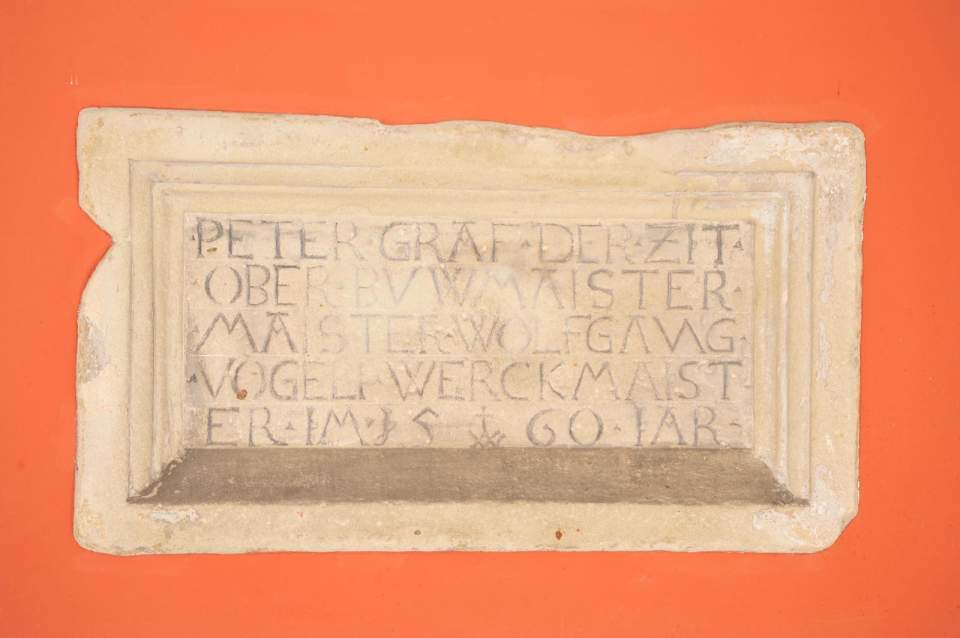 ·PETER·GRAF·DER·ZIT·
·OBER·BVWMAISTER·
MAISTER·WOLFGANG·
·VOGELI·WERCKMAIST
ER·IM·15 60·IAR·